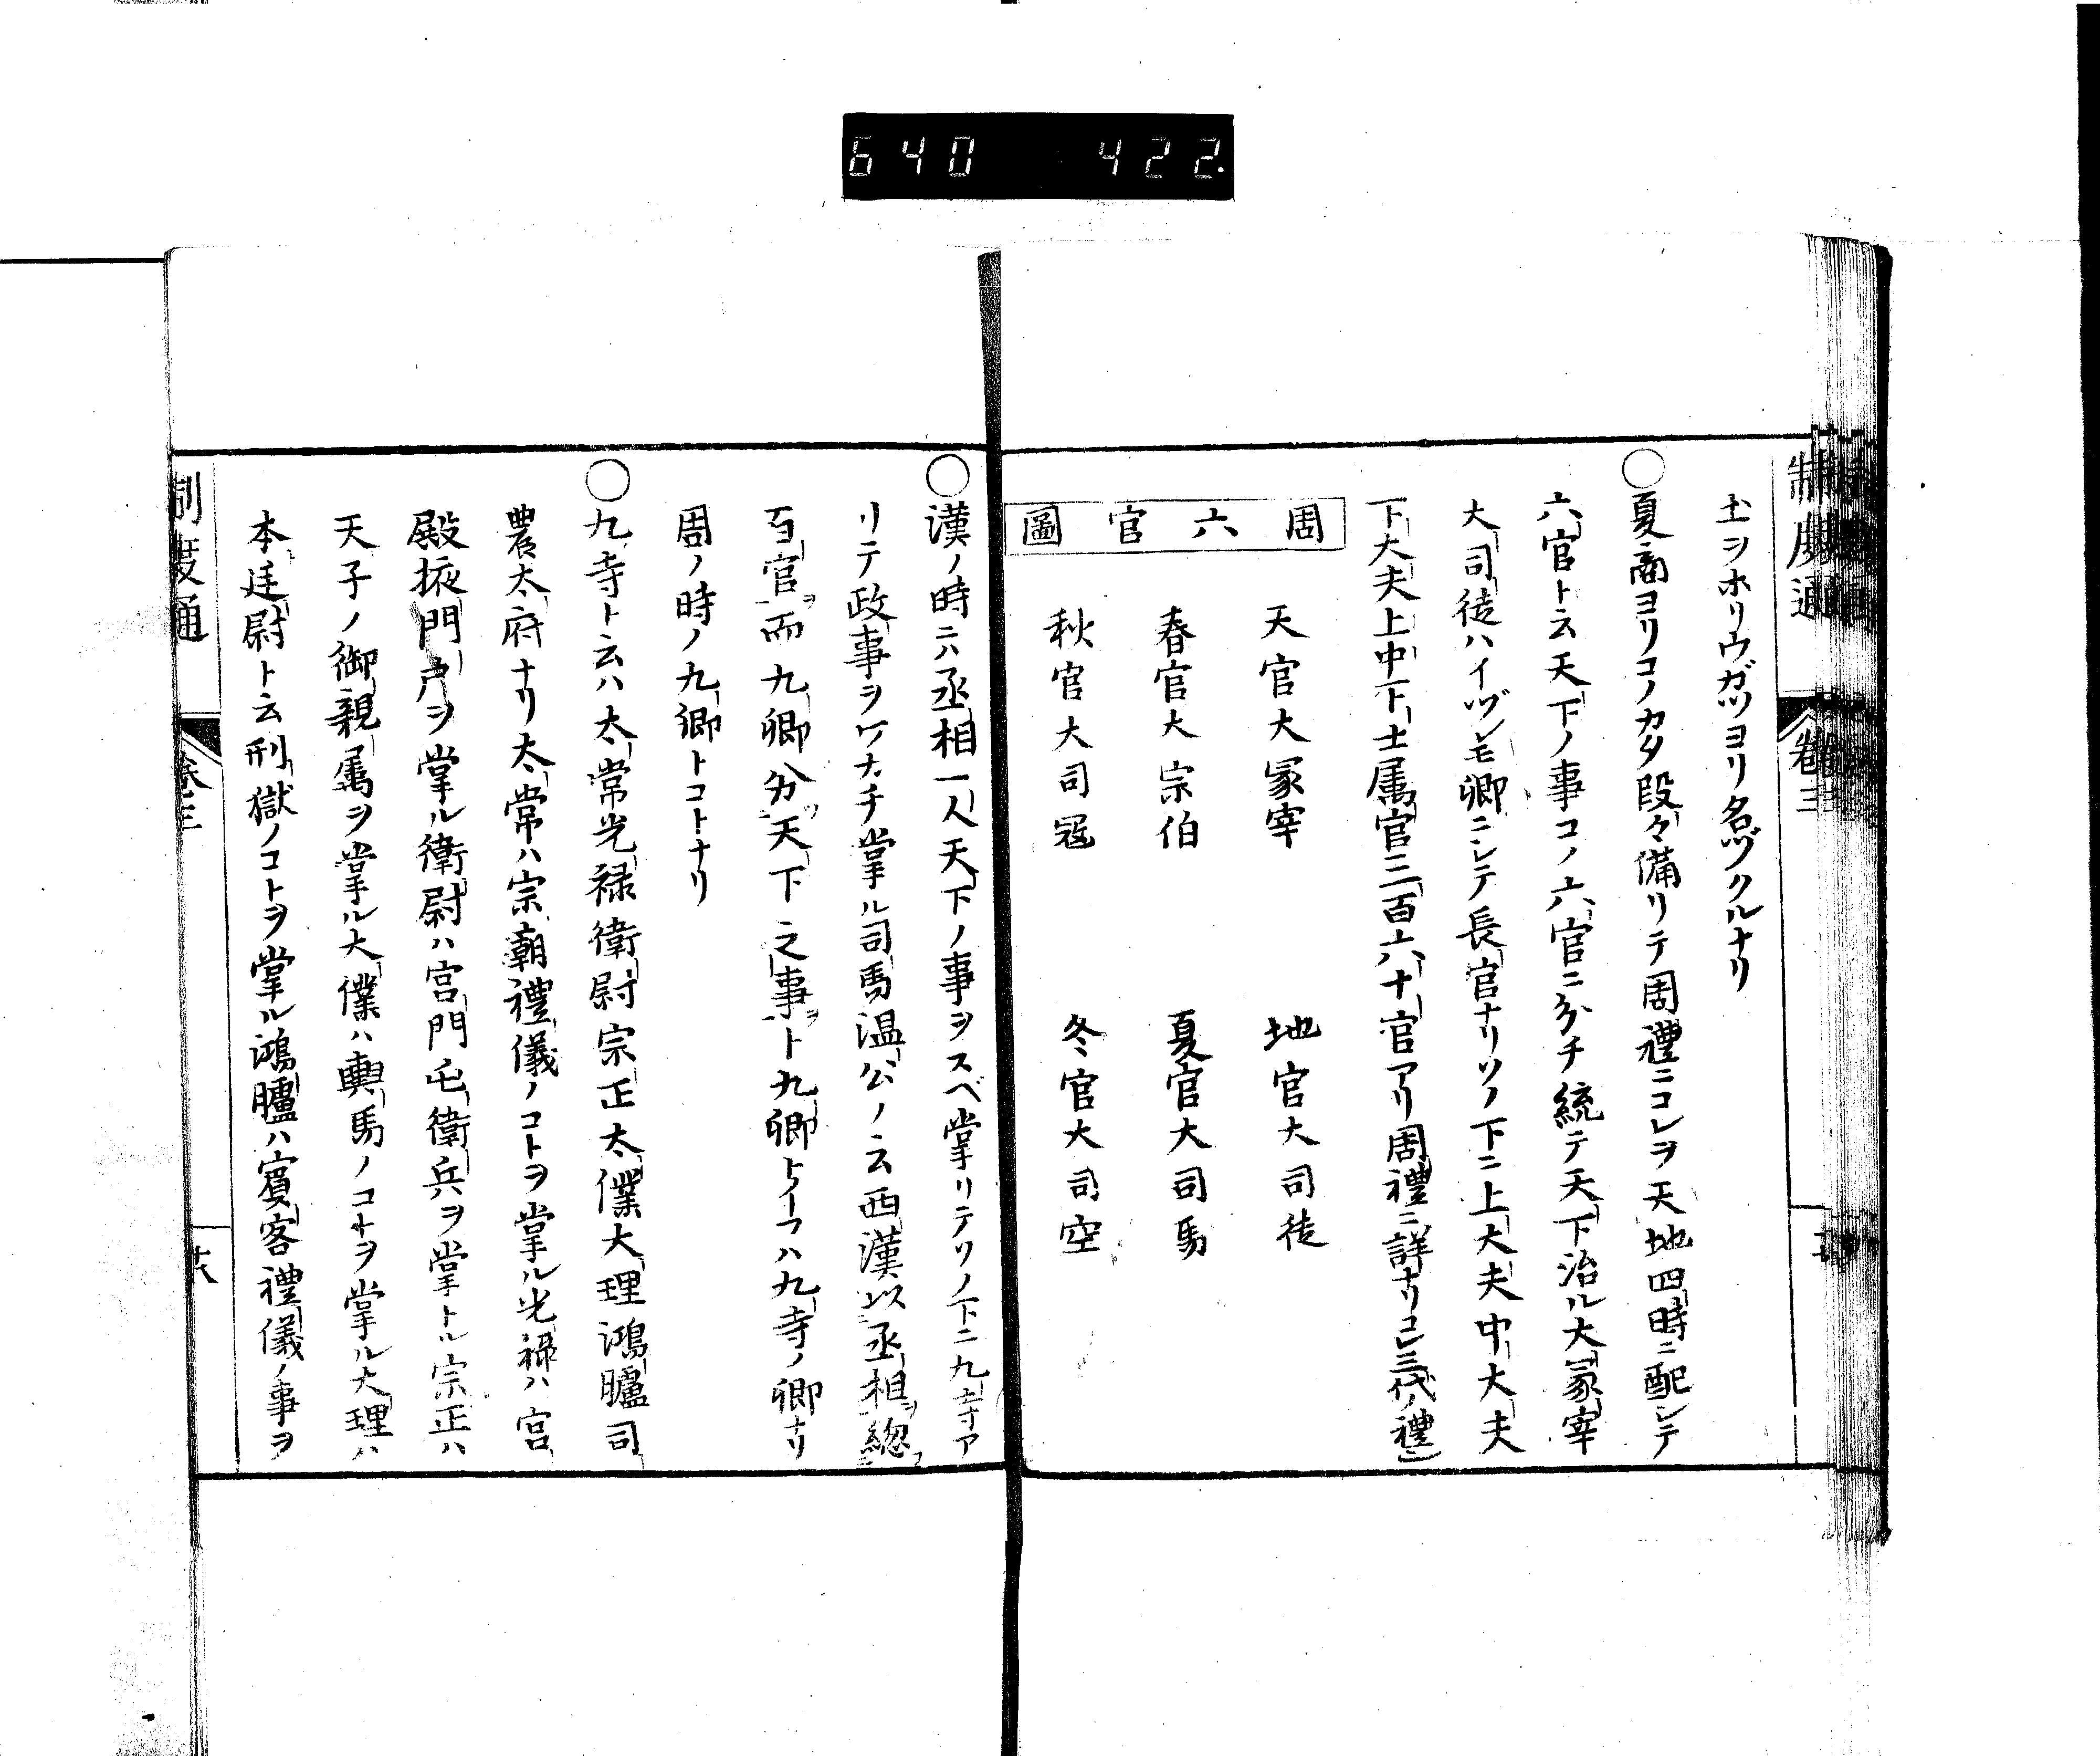 640 422.
制度通
卷三
土ヲホリウガツヨリ名ヅクルナリ
○夏商ヨリコノカタ段々備リテ周禮ニコレヲ天地四時ニ配シテ
六官ト云天下ノ事コノ六官ニ分チ統テ天下治ル大冢宰
大司徒ハイヅレモ卿ニシテ長官ナリソノ下ニ上大夫中大夫
下大夫上中下士属官三百六十官アリ周禮ニ詳ナリコレ三代ノ禮
周六官圖
天官大冢宰 地官大司徒
春官大宗伯 夏官大司馬
秋官大司冦 冬官大司空
○漢ノ時ニハ丞相一人天下ノ事ヲスベ掌リテソノ下ニ九寺ア
リテ政事ヲワカチ掌ル司馬温公ノ云西漢以丞相總
百官而九卿分天下之事ト九卿トイフハ九寺ノ卿ナリ
周ノ時ノ九卿トコトナリ
○九寺ト云ハ太常光禄衛尉宗正太僕大理鴻臚司
農太府ナリ太常ハ宗廟禮儀ノコトヲ掌ル光禄ハ宮
殿掖門戸ヲ掌ル衛尉ハ宮門屯衛兵ヲ掌トル宗正ハ
天子ノ御親属ヲ掌ル大僕ハ輿馬ノコトヲ掌ル大理ハ
本廷尉ト云刑獄ノコトヲ掌ル鴻臚ハ賓客禮儀ノ事ヲ
制度通
卷三
十六